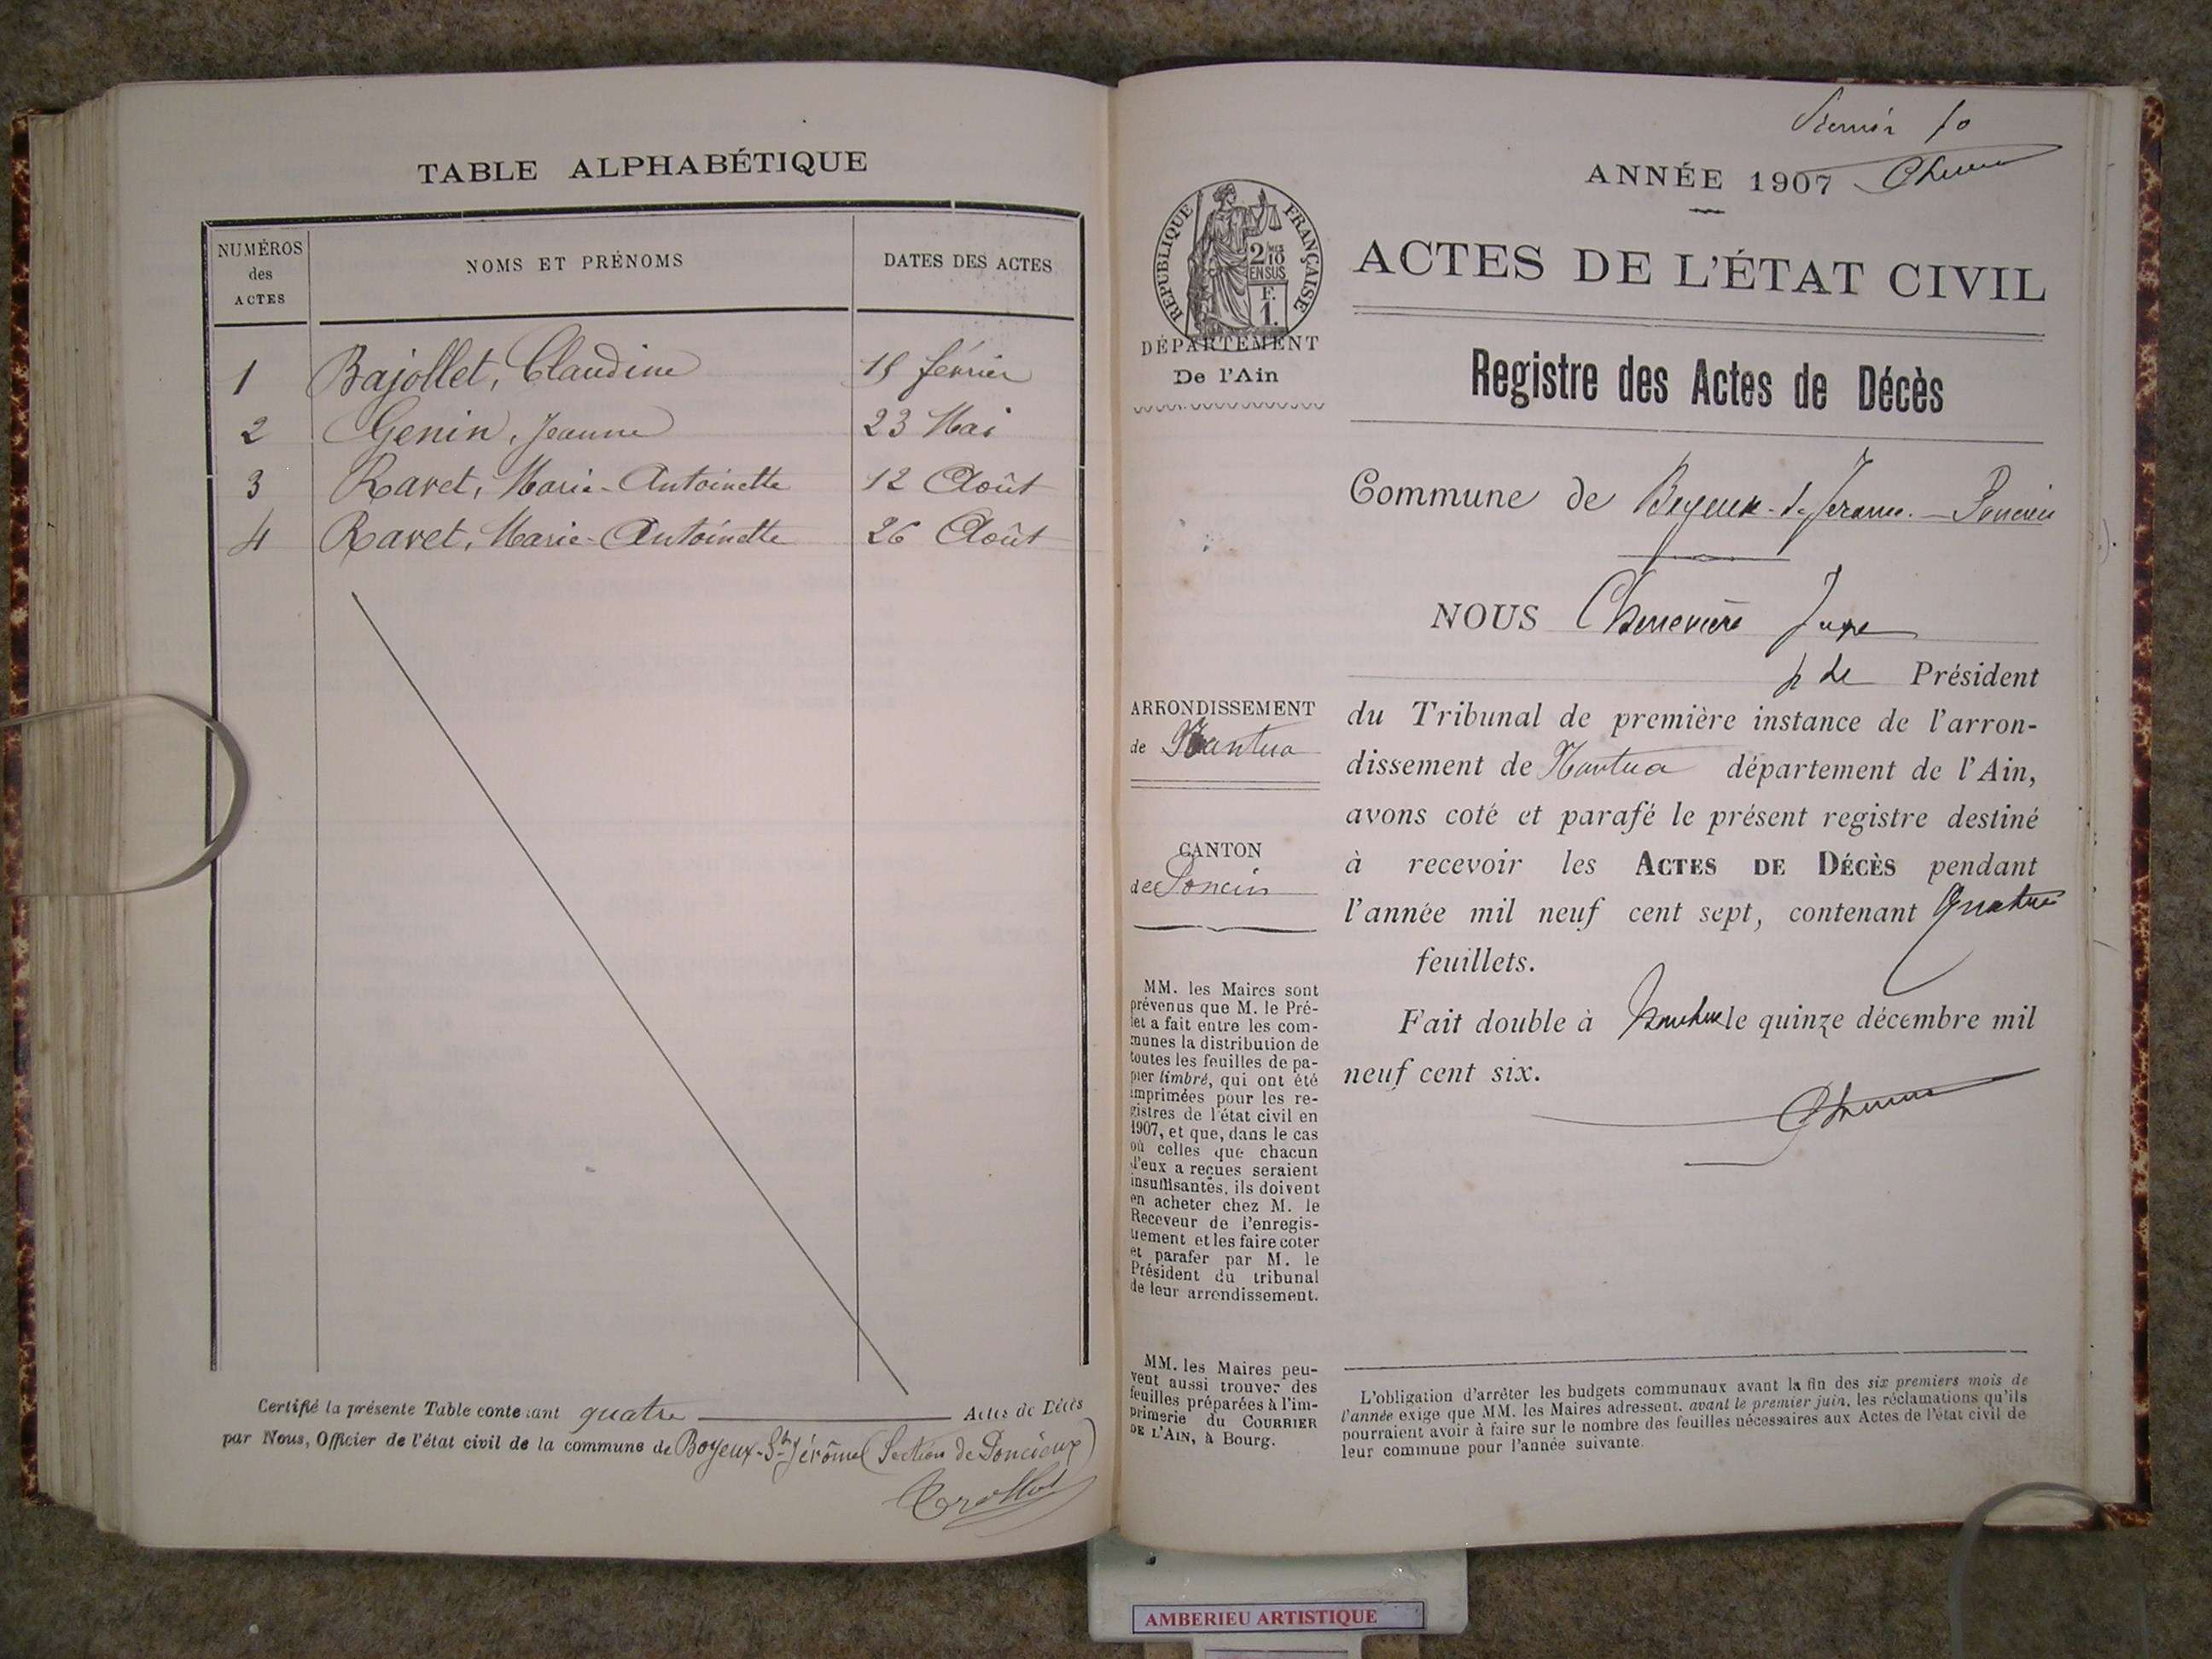 TABLE ALPHABÉTIQUE
NUMÉROS des ACTES
NOMS ET PRÉNOMS
DATES DES ACTES
1 Bajollet, Claudine 15 février
2 Genin, Jeanne 23 Mai
3 Ravet, Marie-Antoinette 12 Août
4 Ravet, Marie-Antoinette 26 Août
Certifié la présente Table contenant quatre Actes de Décès
par Nous, Officier de l'état civil de la commune de Boyeux-St-Jérôme (Section de Poncieux)
ANNÉE 1907
RÉPUBLIQUE FRANÇAISE
2/10 EN SUS
F. 1.
DÉPARTEMENT
De l'Ain
ACTES DE L'ÉTAT CIVIL
Registre des Actes de Décès
Commune de Boyeux-St-Jérome - Poncieux
NOUS Chenevière Juge
p le Président
du Tribunal de première instance de l'arron-
dissement de Nantua département de l'Ain,
avons coté et parafé le présent registre destiné
à recevoir les ACTES DE DÉCÈS pendant
l'année mil neuf cent sept, contenant Quatre
feuillets.
Fait double à Nantua le quinze décembre mil
neuf cent six.
ARRONDISSEMENT
de Nantua
CANTON
de Poncin
MM. les Maires sont
prévenus que M. le Pré-
fet a fait entre les com-
munes la distribution de
toutes les feuilles de pa-
pier timbré, qui ont été
imprimées pour les re-
gistres de l'état civil en
1907, et que, dans le cas
où celles que chacun
d'eux a reçues seraient
insuffisantes, ils doivent
en acheter chez M. le
Receveur de l'enregis-
trement et les faire coter
et parafer par M. le
Président du tribunal
de leur arrondissement.
MM. les Maires peu-
vent aussi trouver des
feuilles préparées à l'im-
primerie du COURRIER
DE L'AIN, à Bourg.
L'obligation d'arrêter les budgets communaux avant la fin des six premiers mois de
l'année exige que MM. les Maires adressent, avant le premier juin, les réclamations qu'ils
pourraient avoir à faire sur le nombre des feuilles nécessaires aux Actes de l'état civil de
leur commune pour l'année suivante.
AMBERIEU ARTISTIQUE